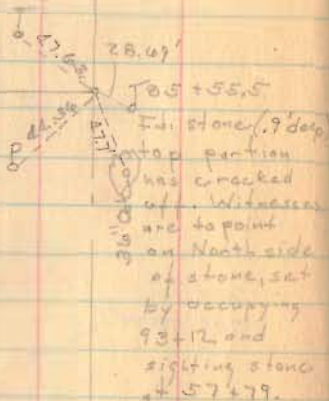 T
47.63
28.49'
T
85 + 55.5
P
44.36
47.7
36" Oak
Fnd stone (.9' deep)
top portion
has cracked
off. Witnesses
are to point
on North side
of stone, set
by occupying
93+12 and
sighting stone
at 57+79.